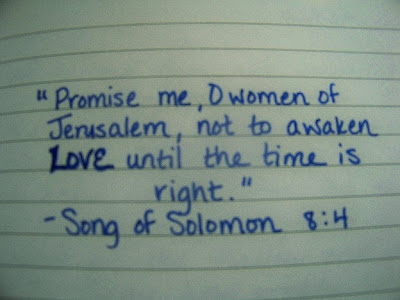 "Promise me, O women of
Jerusalem, not to awaken
LOVE until the time is
right."
- Song of Solomon 8:4